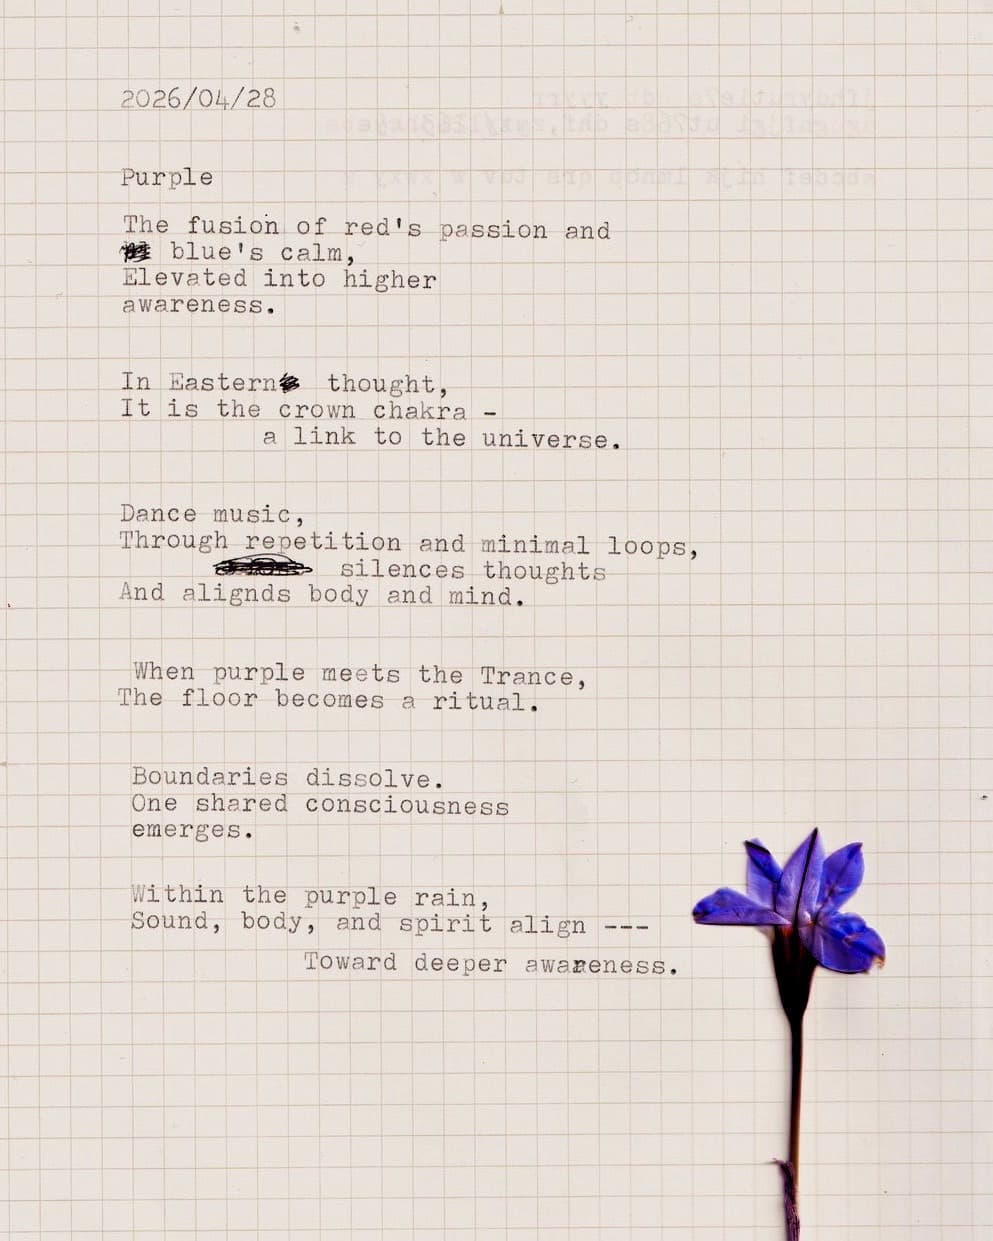 2026/04/28
Purple
The fusion of red's passion and
blue's calm,
Elevated into higher
awareness.
In Eastern thought,
It is the crown chakra -
a link to the universe.
Dance music,
Through repetition and minimal loops,
silences thoughts
And alignds body and mind.
When purple meets the Trance,
The floor becomes a ritual.
Boundaries dissolve.
One shared consciousness
emerges.
Within the purple rain,
Sound, body, and spirit align ---
Toward deeper awareness.